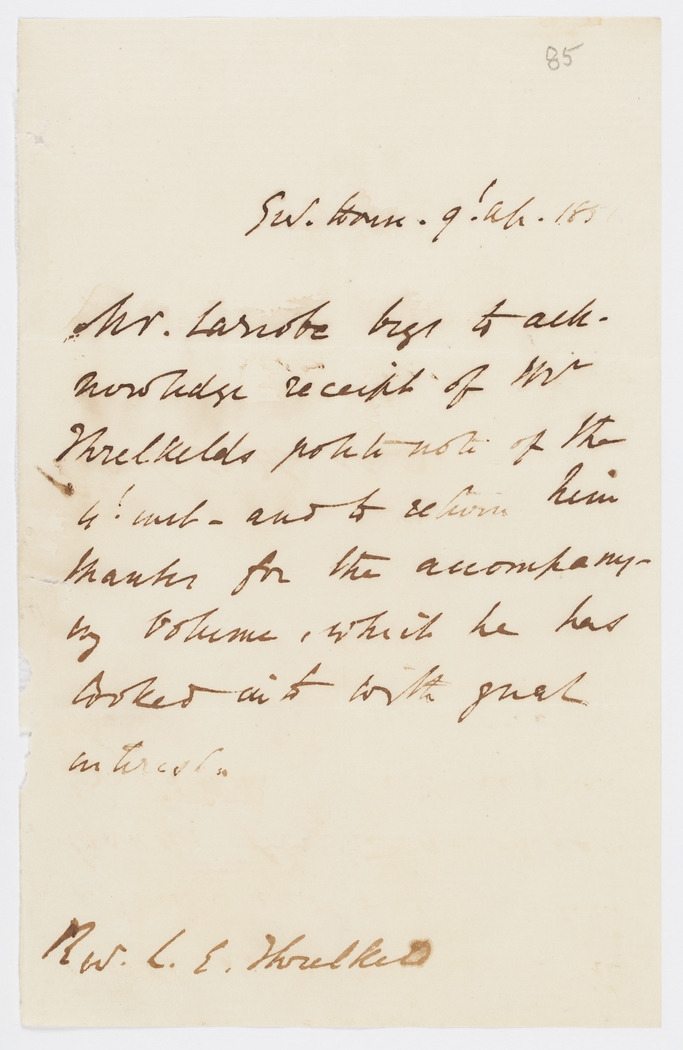 85
Gov. House. 9! Ap. 185
Mr. Latrobe begs to ack-
nowledge receipt of Mr
Threlkelds polite note of the
4! inst - and to return him
thanks for the accompany-
ing volume, which he has
looked into with great
interest.
Rev. L. E. Threlkeld